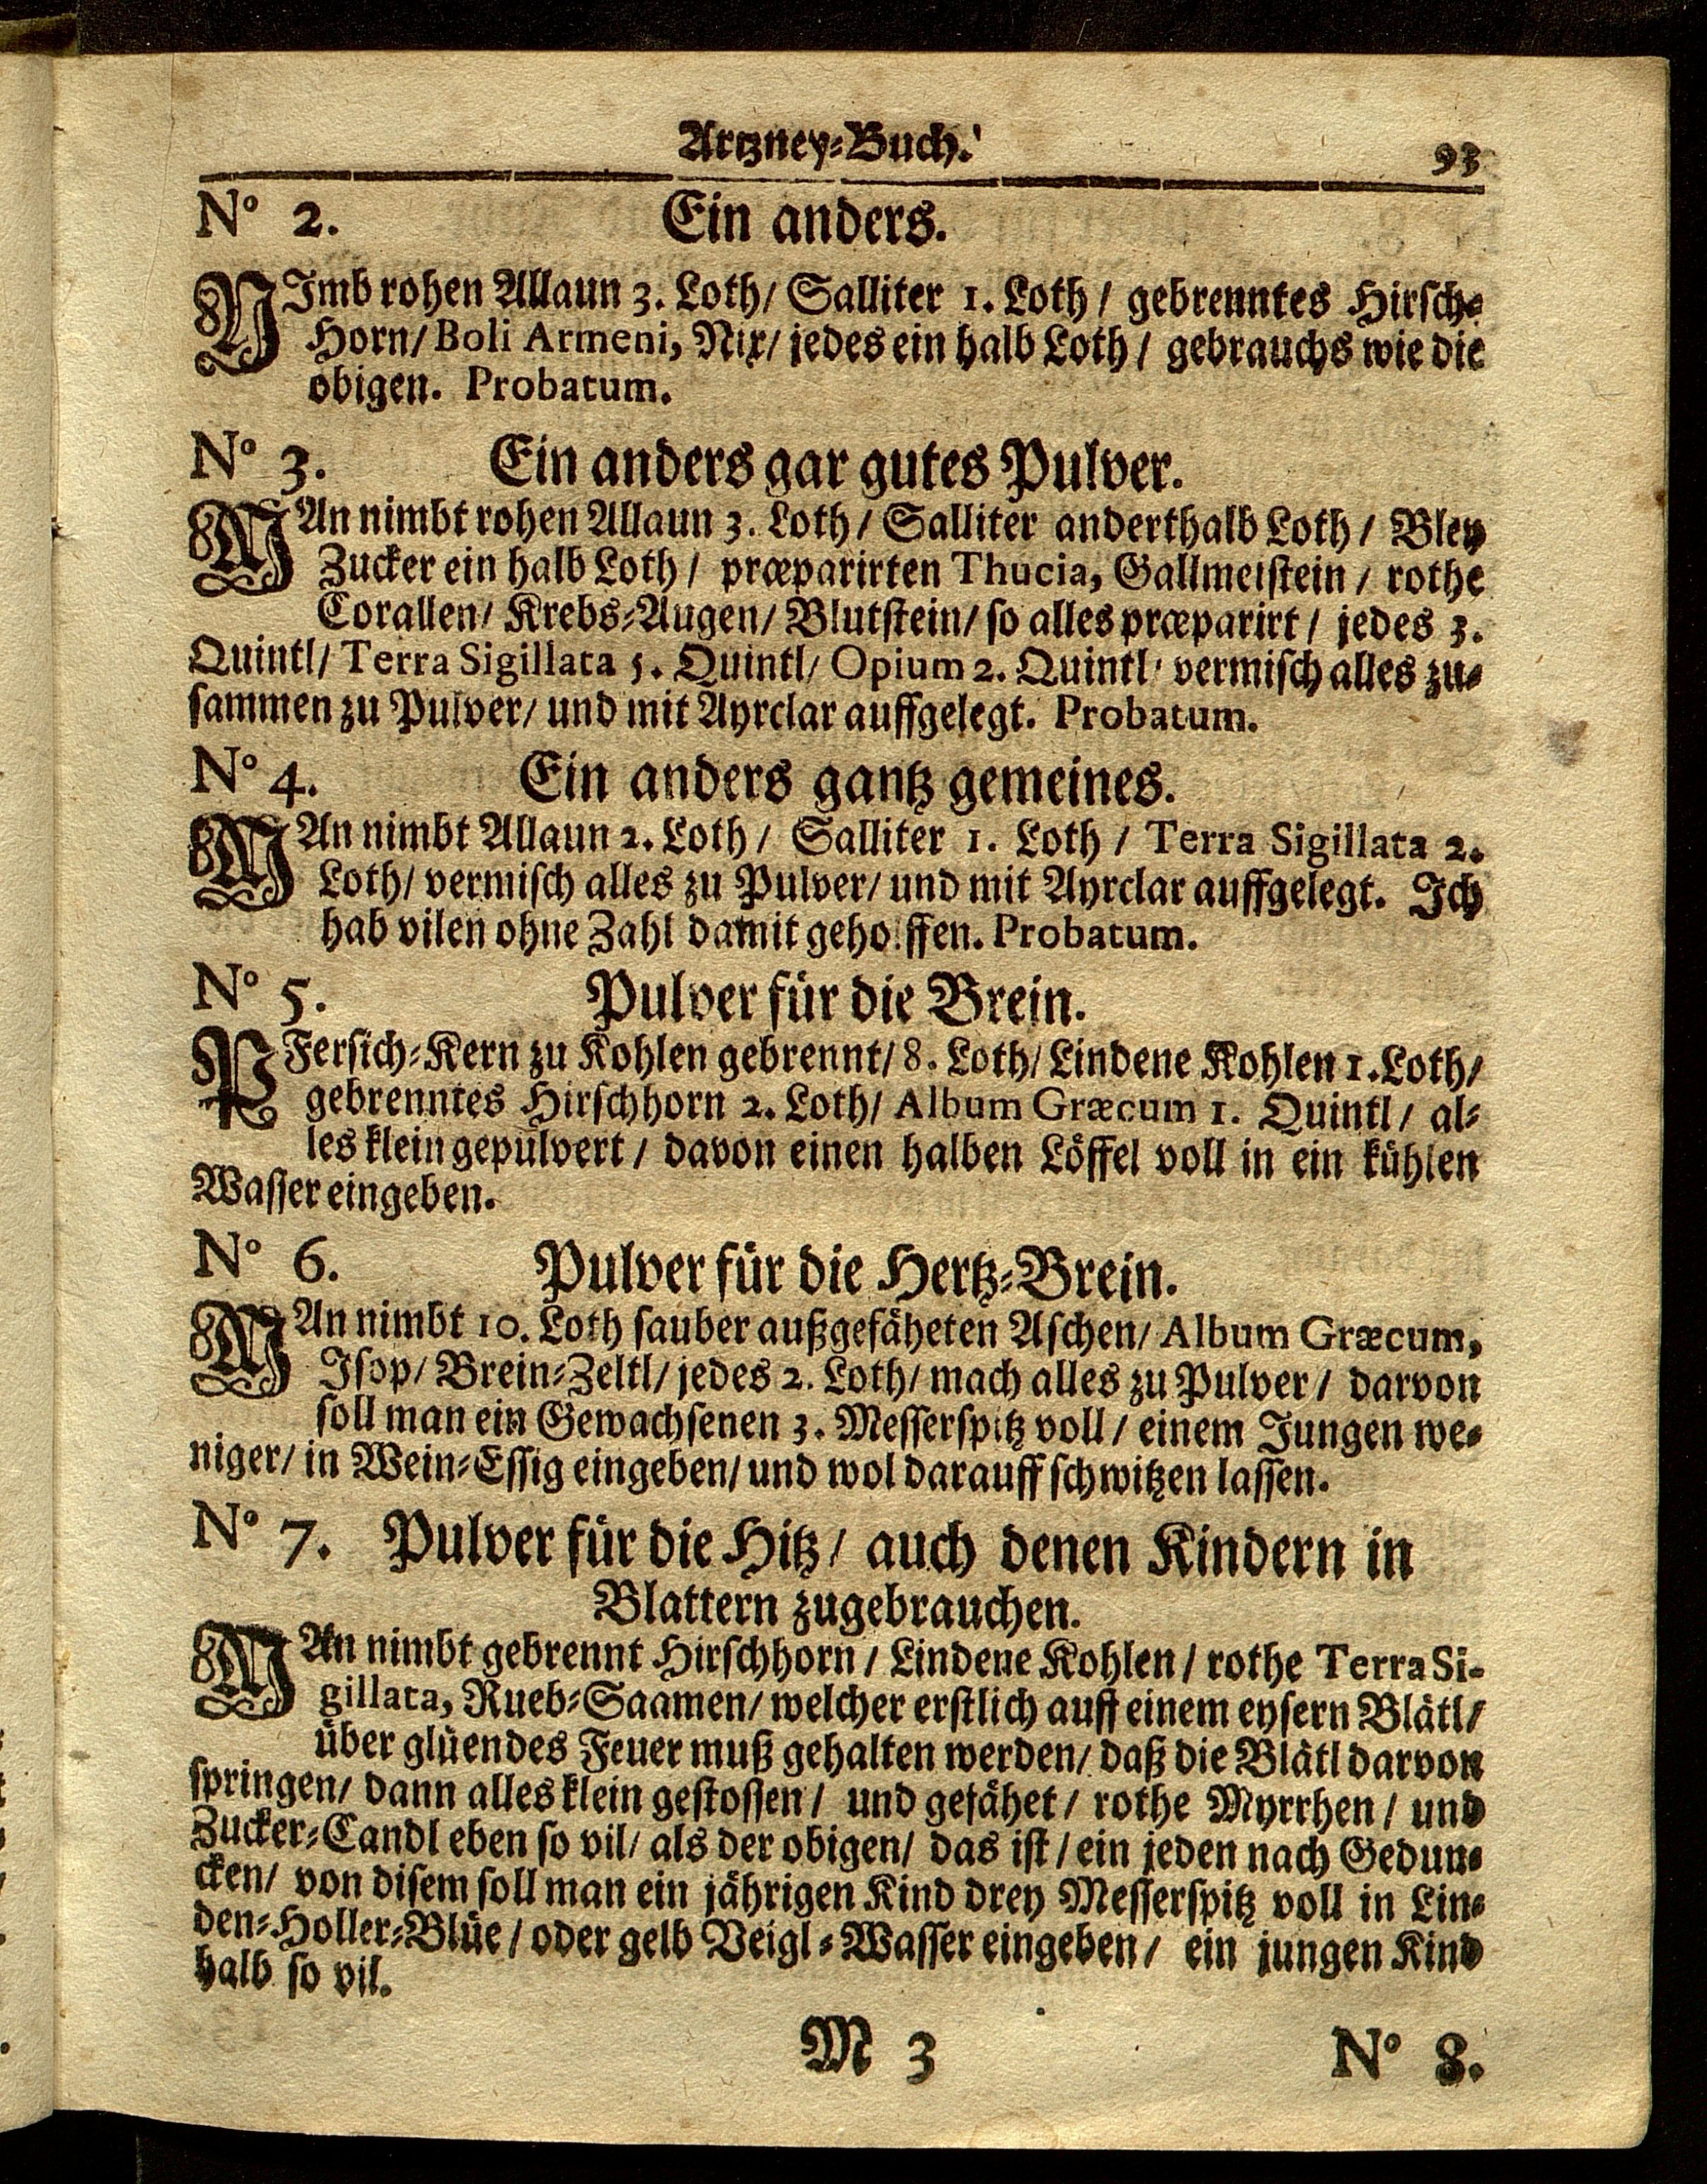 Artzney-Buch.
93
No 2. Ein anders.
NImb rohen Allaun 3. Loth/ Salliter 1. Loth / gebrenntes Hirsch-
Horn/ Boli Armeni, Nix/ jedes ein halb Loth / gebrauchs wie die
obigen. Probatum.
No 3. Ein anders gar gutes Pulver.
MAn nimbt rohen Allaun 3. Loth / Salliter anderthalb Loth / Bley
Zucker ein halb Loth / præparirten Thucia, Gallmeistein / rothe
Corallen/ Krebs-Augen/ Blutstein/ so alles præparirt / jedes 3.
Quintl/ Terra Sigillata 5. Quintl/ Opium 2. Quintl/ vermisch alles zu-
sammen zu Pulver/ und mit Ayrclar auffgelegt. Probatum.
No 4. Ein anders gantz gemeines.
MAn nimbt Allaun 2. Loth / Salliter 1. Loth / Terra Sigillata 2.
Loth/ vermisch alles zu Pulver/ und mit Ayrclar auffgelegt. Ich
hab vilen ohne Zahl damit geholffen. Probatum.
No 5. Pulver für die Brein.
PFersich-Kern zu Kohlen gebrennt/ 8. Loth/ Lindene Kohlen 1. Loth/
gebrenntes Hirschhorn 2. Loth/ Album Græcum 1. Quintl / al-
les klein gepülvert / davon einen halben Löffel voll in ein kühlen
Wasser eingeben.
No 6. Pulver für die Hertz-Brein.
MAn nimbt 10. Loth sauber außgefäheten Aschen/ Album Græcum,
Isop/ Brein-Zeltl/ jedes 2. Loth/ mach alles zu Pulver / darvon
soll man ein Gewachsenen 3. Messerspitz voll / einem Jungen we-
niger/ in Wein-Essig eingeben/ und wol darauff schwitzen lassen.
No 7. Pulver für die Hitz / auch denen Kindern in
Blattern zugebrauchen.
MAn nimbt gebrennt Hirschhorn / Lindene Kohlen / rothe Terra Si-
gillata, Rueb-Saamen/ welcher erstlich auff einem eysern Blätl/
über glüendes Feuer muß gehalten werden/ daß die Blätl darvon
springen/ dann alles klein gestossen / und gefähet / rothe Myrrhen / und
Zucker-Candl eben so vil/ als der obigen/ das ist / ein jeden nach Gedun-
cken/ von disem soll man ein jährigen Kind drey Messerspitz voll in Lin-
den-Holler-Blüe / oder gelb Veigl-Wasser eingeben / ein jungen Kind
halb so vil.
M 3
No 8.